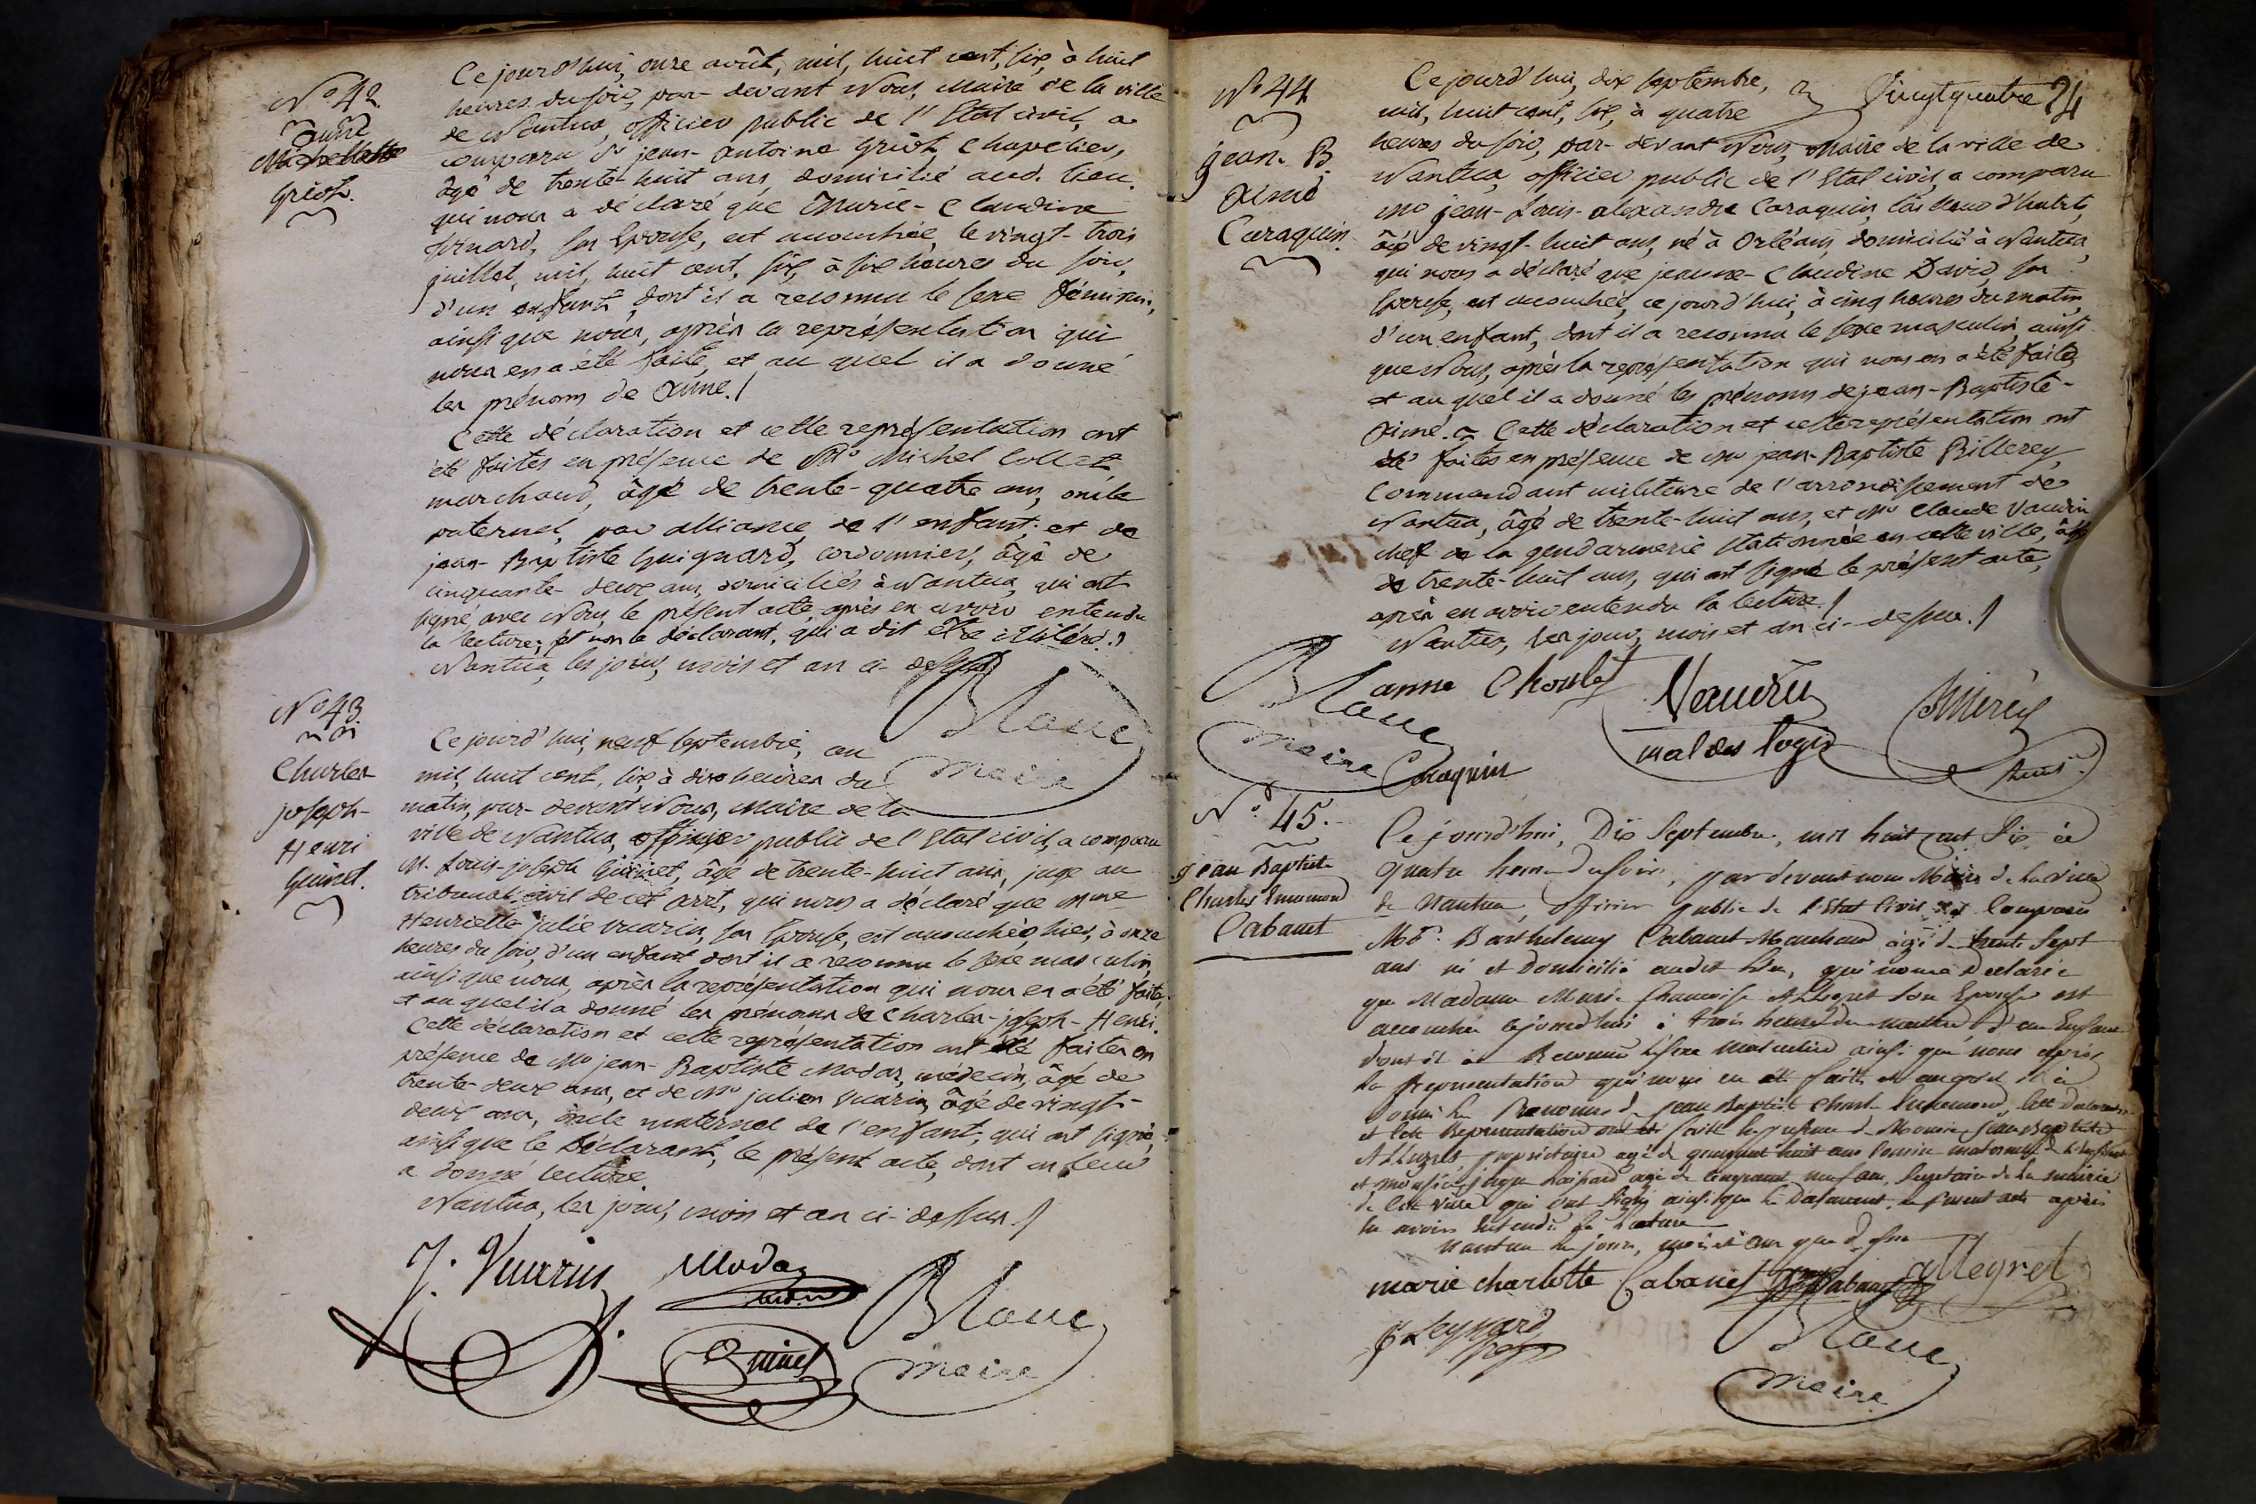 N° 42
anne
Michelette
Griot.
Ce jourd'hui, onze août, mil, huit cent, six, à huit
heures du soir, par-devant Nous, Maire de la ville
de Nantua, officier public de l'Etat civil, a
comparu Sr jean-antoine Griot, Chapelier,
âgé de trente-huit ans, domicilié aud. lieu.
qui nous a déclaré que Marie-Claudine
son Epouse, est accouchée, le vingt-trois
juillet, mil, huit cent, six, à six heures du soir,
d'un enfant, dont il a reconnu le sexe féminin,
ainsi que nous, après la représentation qui
nous en a été faite, et au quel il a donné
les prénoms de anne./
Cette déclaration et cette représentation ont
été faites en présence de Michel Collet
marchand, âgé de trente-quatre ans, oncle
paternel, par alliance, de l'enfant; et de
jean-Baptiste Guignard, cordonnier, âgé de
cinquante-deux ans, domiciliés à Nantua, qui ont
signé avec Nous, le présent acte, après en avoir entendu
la lecture, et non le déclarant, qui a dit être illitéré./
Nantua, les jour, mois et an ci-dessus
Blanc
Maire
N° 43
Charles
joseph-
Henri
Guinet.
Ce jourd'hui, neuf septembre, an
mil, huit cent, six, à dix heures du
matin, par-devant Nous, Maire de la
ville de Nantua, officier public de l'Etat civil, a comparu
M. Louis-joseph Guinet, âgé de trente-huit ans, juge au
tribunal civil de cet arrt, qui nous a déclaré que
Henriette julie vuarin, son Epouse, est accouchée, hier, à onze
heures du soir, d'un enfant dont il a reconnu le sexe masculin,
ainsi que nous, après la représentation qui nous en a été faite,
et au quel il a donné les prénoms de Charles-joseph-Henri.
Cette déclaration et cette représentation ont été faites en
présence de Mr jean-Baptiste Modas, médecin, âgé de
trente-deux ans, et de Mr julien vuarin, âgé de vingt-
deux ans, oncle maternel de l'enfant, qui ont signé,
ainsi que le Déclarant, le présent acte, dont
a donné lecture.
Nantua, les jour, mois et an ci-dessus./
J. Vuarin
Modas
Guinet
Blanc
Maire
Vingt quatre 24
N° 44
jean-B
aimé
Caraquin
Ce jourd'hui, dix septembre,
mil, huit cent, six, à quatre
heures du soir, par-devant Nous, Maire de la ville de
Nantua, officier public de l'Etat civil, a comparu
Mr jean-Louis-alexandre Caraquin,
âgé de vingt-huit ans, né à Orléans, domicilié à Nantua,
qui nous a déclaré que jeanne-Claudine David, son
Epouse, est accouchée, ce jourd'hui, à cinq heures du matin,
d'un enfant, dont il a reconnu le sexe masculin, ainsi
que Nous, après la représentation qui nous en a été faite,
et au quel il a donné les prénoms de jean-Baptiste-
aimé. Cette déclaration et cette représentation ont
été faites en présence de Mr jean-Baptiste Billerey,
Commandant militaire de l'arrondissement de
Nantua, âgé de trente-huit ans, et Mr Claude Vaudin
chef de la gendarmerie stationnée en cette ville, âgé
de trente-huit ans, qui ont signé le présent acte,
après en avoir entendu la lecture./
Nantua, les jour, mois et an ci-dessus./
Blanc
Maire
anne Choulet
Caraquin
mal des logis
N° 45.
jean Baptiste
Charles
Cabanet
Ce jourd'hui, Dix Septembre, mil huit cent Six, à
quatre heures du soir, par devant nous Maire de la ville
de Nantua, officier public de l'Etat Civil, a Comparu
Mr. Barthelemy Cabanet Marchand âgé de trente sept
ans né et Domicilié audit lieu, qui nous a Declaré
que Madame Marie Francoise Allegret son Epouse est
accouchée cejourd'hui à trois heures du matin d'un Enfant
dont il a Reconnu le sexe masculin ainsi que nous après
la Representation qui nous en a été faitte et auquel il a
Donné les Prenoms de Jean Baptiste Charles
et cette Representation ont été faitte en presence de Monsieur Jean Baptiste
Allegret proprietaire agé de cinquante huit ans
et Monsieur agé de cinquante neuf ans, Secretaire de la mairie
de cette ville qui ont signé ainsi que le Déclarant le present acte après
en avoir entendu la Lecture
Nantua les jour, mois et an que dessus
marie charlotte Cabanet
Cabanet
allegret
Blanc
Maire